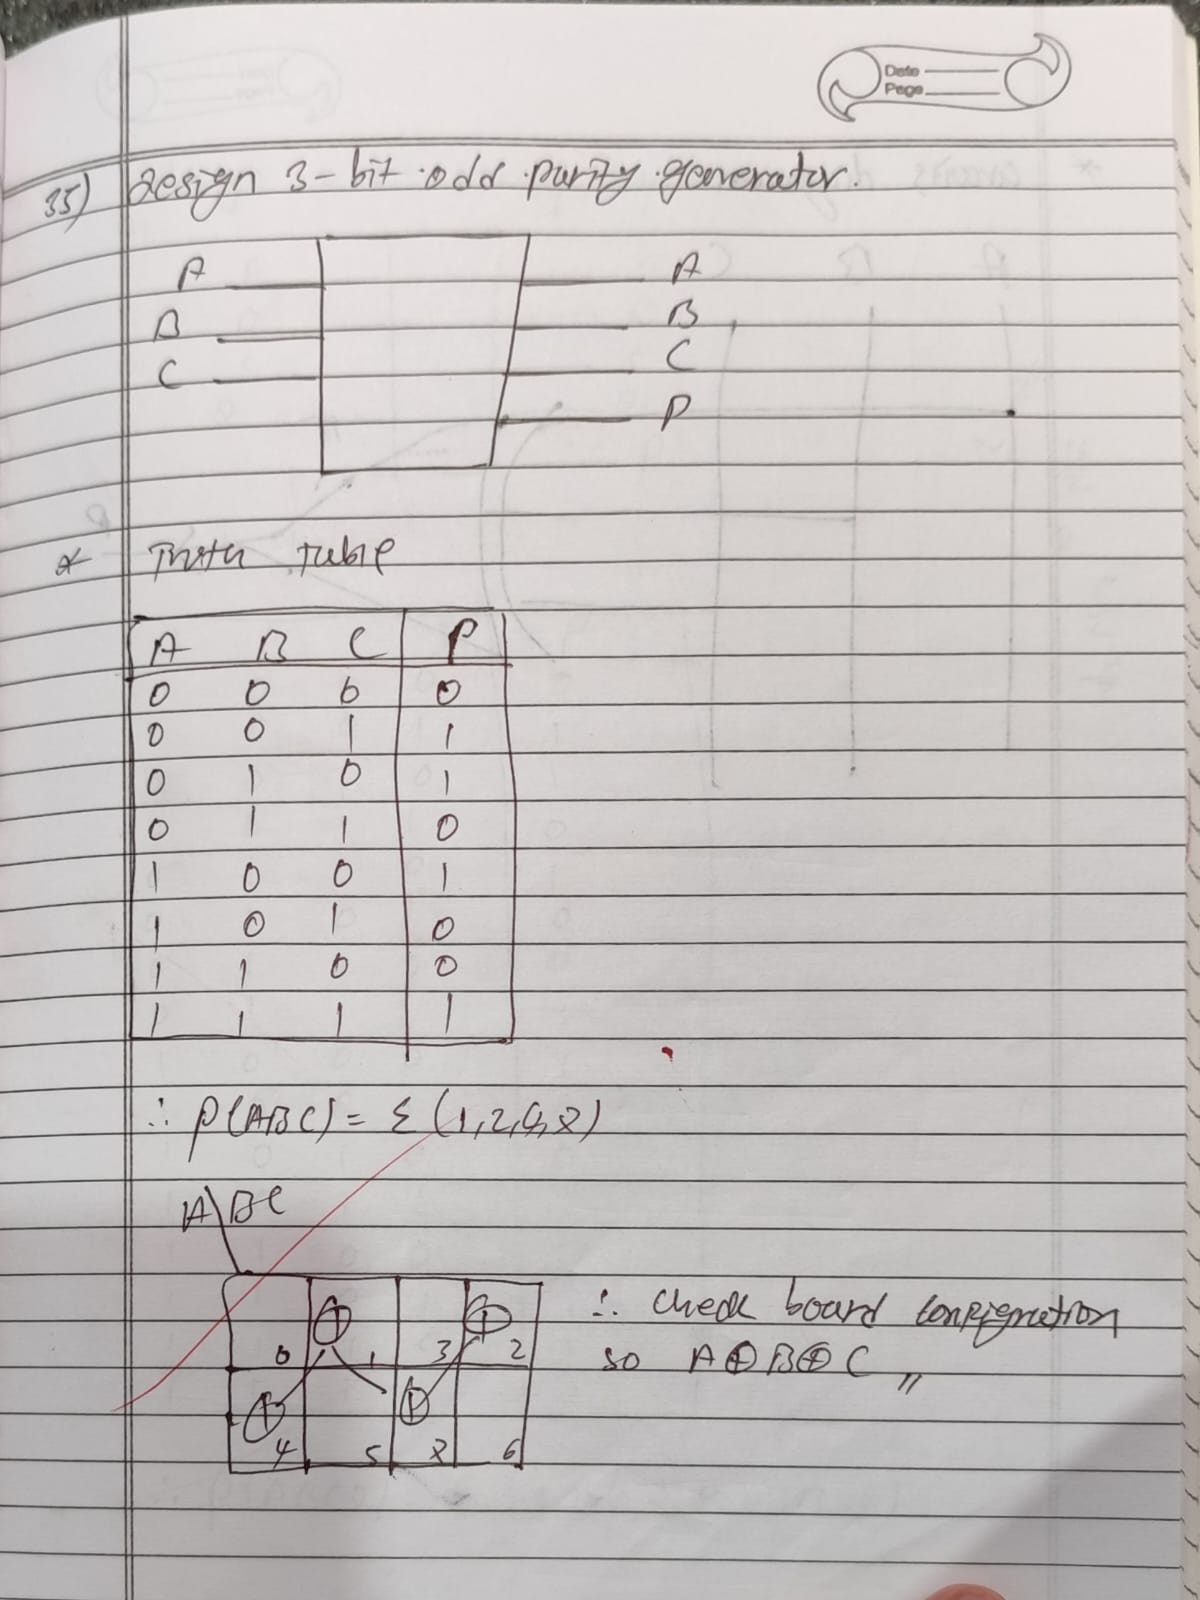 Date
Page
35) Design 3-bit odd parity generator.
A A
B B
C C
P
* Truth table
A B C P
0 0 0 0
0 0 1 1
0 1 0 1
0 1 1 0
1 0 0 1
1 0 1 0
1 1 0 0
1 1 1 1
∴ P(ABC) = Σ (1,2,4,7)
A\BC
0 1 1 3 1 2
1 4 5 1 7 6
∴ Check board configuration
so A⊕B⊕C „